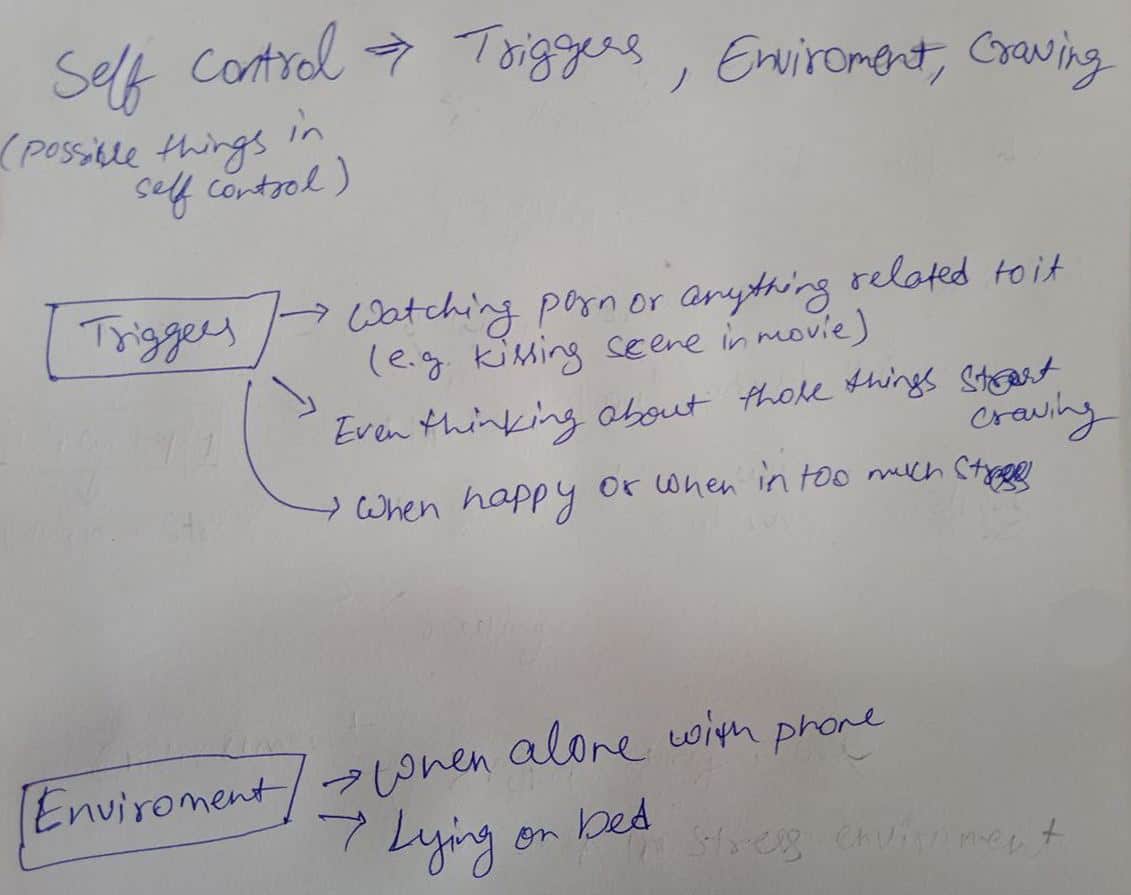 Self Control ⇒ Triggers, Enviroment, Craving
(possible things in
self control)
Triggers → Watching porn or anything related to it
(e.g. kissing scene in movie)
→ Even thinking about those things start
craving
→ When happy or when in too much stress
Enviroment → When alone with phone
→ Lying on bed
in stress environment